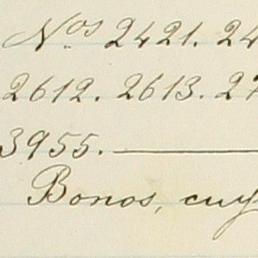 Nos 2421. 24
2612. 2613. 27
3955. —
Bonos, cuy